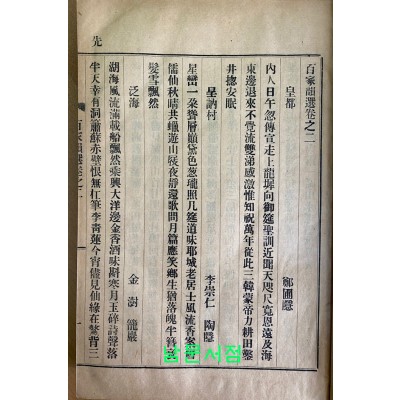 百家選卷之二
皇都 鄭圃隱
內人日午忽傳宣走上龍墀向御筵聖訓近聞天咫尺寬恩遠及海
東邊退來不覺流雙涕感激惟知祝萬年從此三韓蒙帝力耕田鑿
井摠安眠
呈訥村 李崇仁 陶隱
星巒一朶聳層巓黛色葱瓏照几筵道味耶城老居士風流香案
儒仙秋晴共蠟遊山屐夜靜還歌問月篇應笑鄕生猶落魄半簪
髮雪飄然
泛海 金澍 籠巖
湖海風流滿載船飄然乘興大洋邊金香酒味斟寒月玉碎詩聲落
半天幸有洞簫蘇赤壁恨無杠筆李靑蓮今宵儘見仙緣在鰲背三
先
남문서점